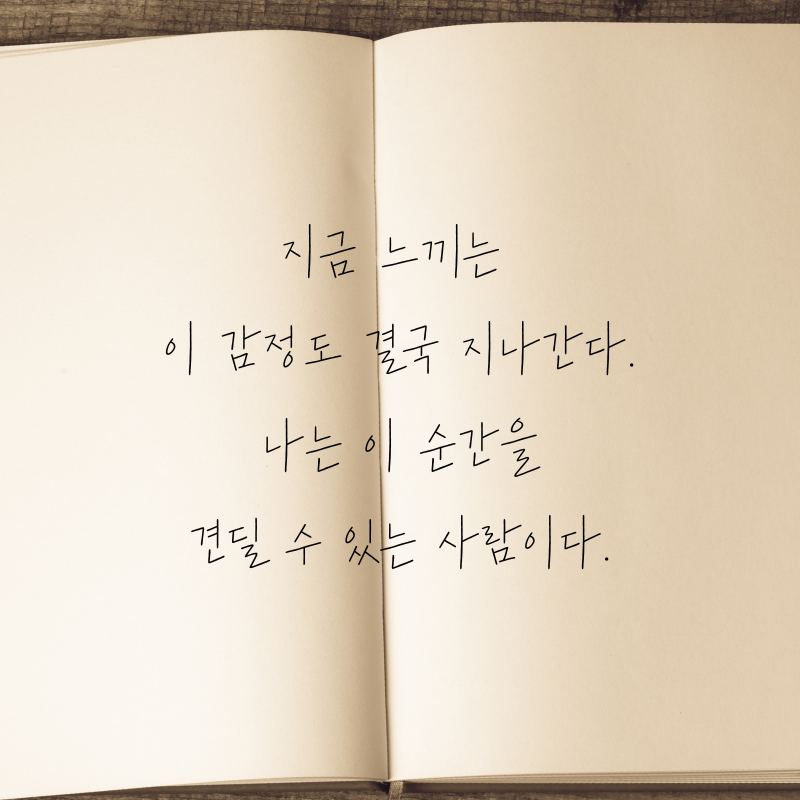 지금 느끼는
이 감정도 결국 지나간다.
나는 이 순간을
견딜 수 있는 사람이다.